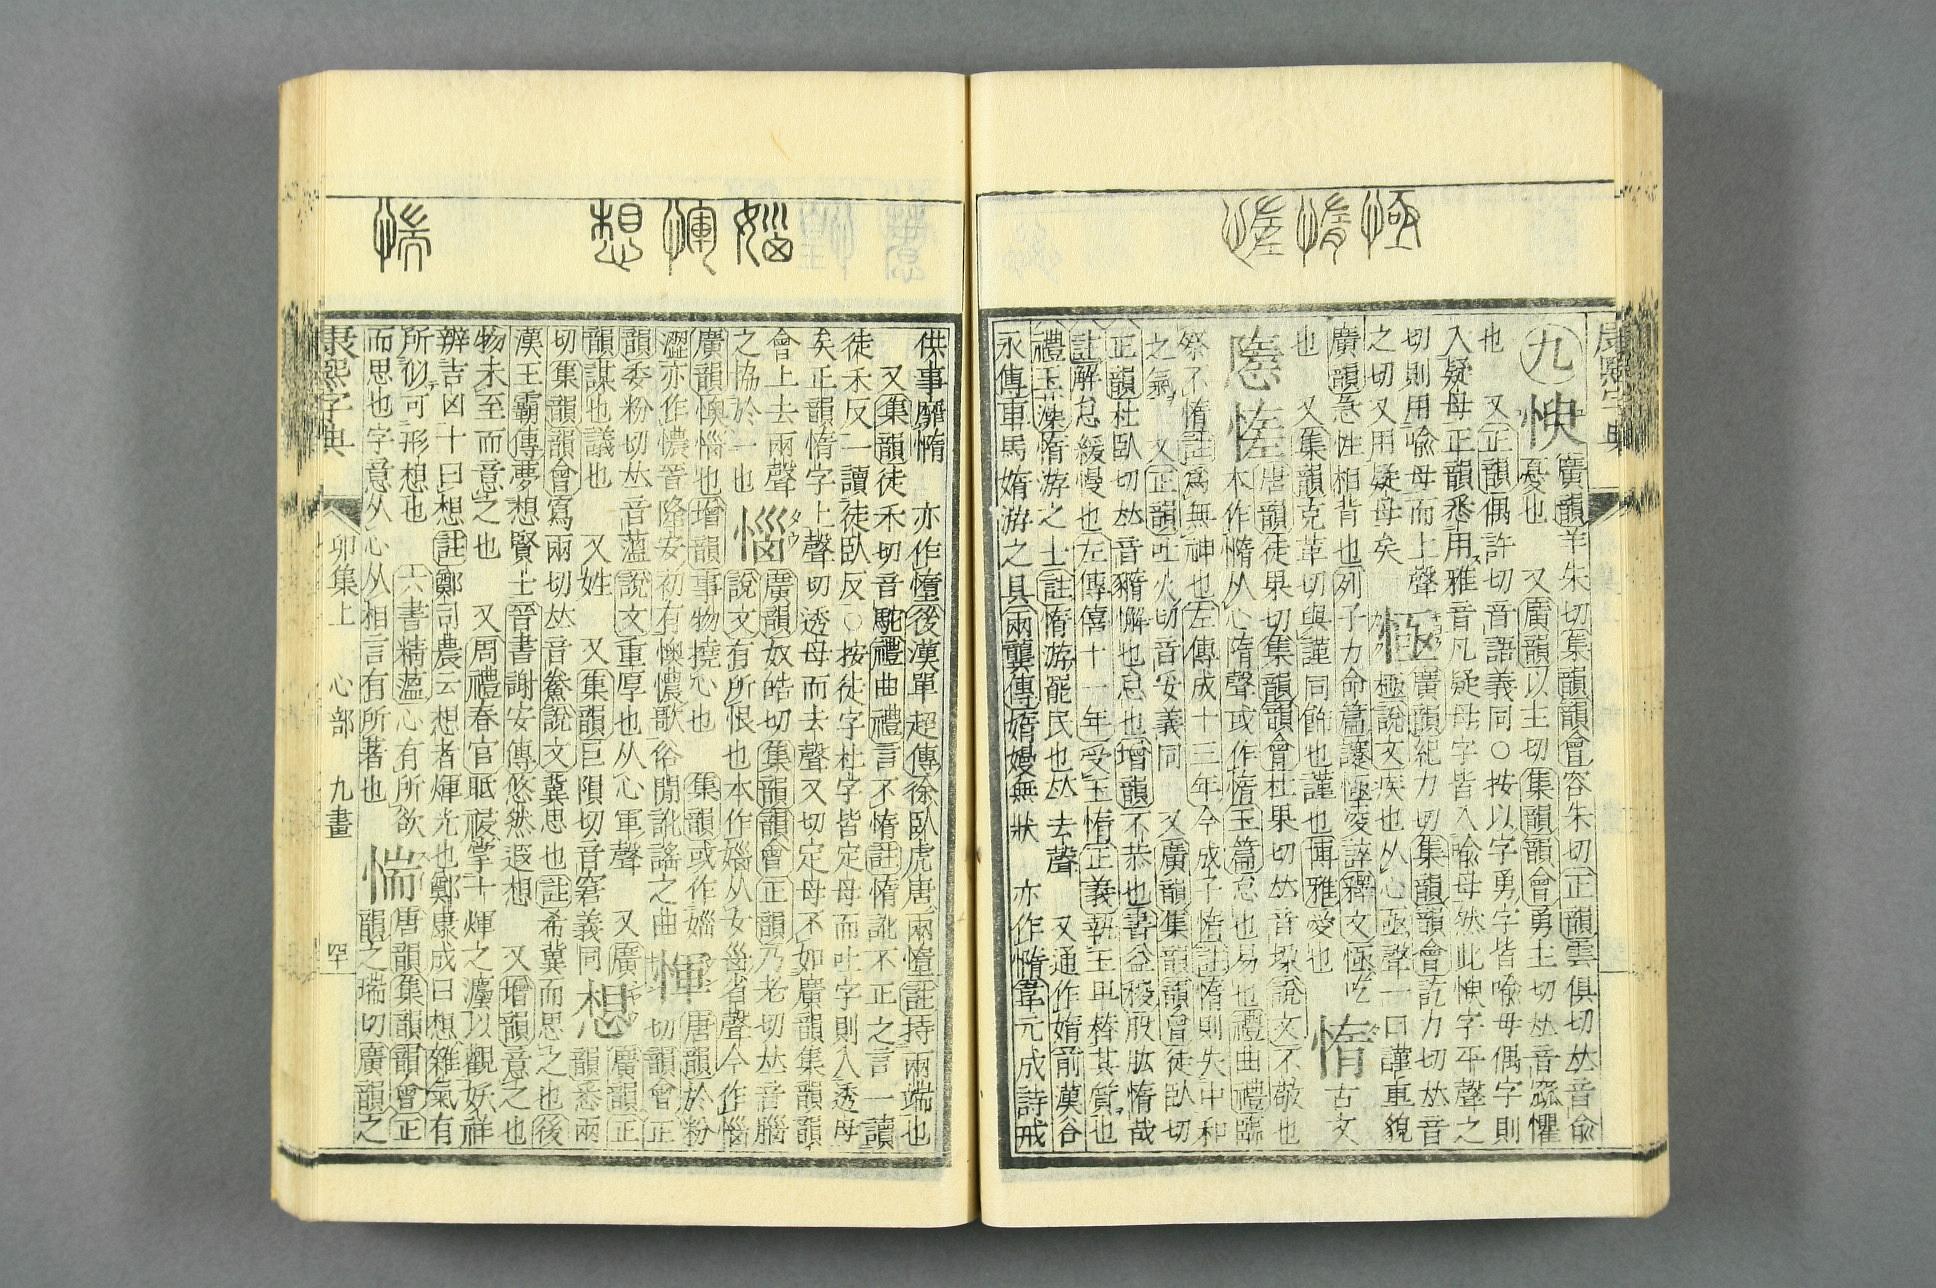 極惰惰
康熙字典
九 㥚 廣韻羊朱切集韻韻會容朱切正韻雲俱切𠀤音俞
憂也 又廣韻以主切集韻韻會勇主切𠀤音窳懼
也 又正韻偶許切音語義同○按以字勇字皆喩母偶字則
入疑母正韻悉用雅音凡疑母字皆入喩母然此㥚字平聲之
切則用喩母而上聲
之切又用疑母矣 㥛 廣韻紀力切集韻韻會訖力切𠀤音
極說文疾也从心亟聲一曰謹重貌
廣韻急性相背也列子力命篇㥛㥛淩誶釋文㥛吃
也 又集韻克革切與謹同飭也謹也博雅愛也 惰 古文
唐韻徒果切集韻韻會杜果切𠀤音垜說文不敬也
本作憜从心隋聲或作惰玉篇怠也易也禮曲禮臨
祭不惰註爲無神也左傳成十三年今成子惰註惰則失中和
之氣 又正韻吐火切音妥義同 又廣韻集韻韻會徒臥切
正韻杜臥切𠀤音䅜懈也怠也增韻不恭也書益稷股肱惰哉
註解怠緩慢也左傳僖十一年受玉惰正義執玉卑替其質也
禮玉藻惰游之士註惰游罷民也𠀤去聲 又通作媠前漢谷
永傳車馬媠游之具兩龔傳媠嫚無狀 亦作憜韋元成詩戒
惱惲想 惴
供事靡惰 亦作憧後漢單超傳徐臥虎唐兩憧註持兩端也
又集韻徒禾切音駝禮曲禮言不惰註惰訛不正之言一讀
徒禾反一讀徒臥反○按徒字杜字皆定母而吐字則入透母
矣正韻惰字上聲切透母而去聲又切定母不如廣韻集韻韻
會上去兩聲
之協於一也 惱 廣韻奴皓切集韻韻會正韻乃老切𠀤音腦
說文有所恨也本作㛴从女𡿺省聲今作惱
廣韻懊惱也增韻事物撓心也 集韻或作㛴
澀亦作憹晉隆安初有懊憹歌俗閒訛謠之曲 惲 唐韻於粉
切韻會正
韻委粉切𠀤音薀說文重厚也从心軍聲 又廣
韻謀也議也 又姓 又集韻巨隕切音窘義同 想 廣韻正
韻悉兩
切集韻韻會寫兩切𠀤音鯗說文冀思也註希冀而思之也後
漢王霸傳夢想賢士晉書謝安傳悠然遐想 又增韻意之也
物未至而意之也 又周禮春官眡祲掌十煇之灋以觀妖祥
辨吉凶十曰想註鄭司農云想者煇光也鄭康成曰想雜氣有
所似可形想也 六書精薀心有所欲
而思也字意从心从相言有所著也 惴 唐韻集韻韻會正
韻之瑞切廣韻之
康熙字典 卯集上 心部 九畫